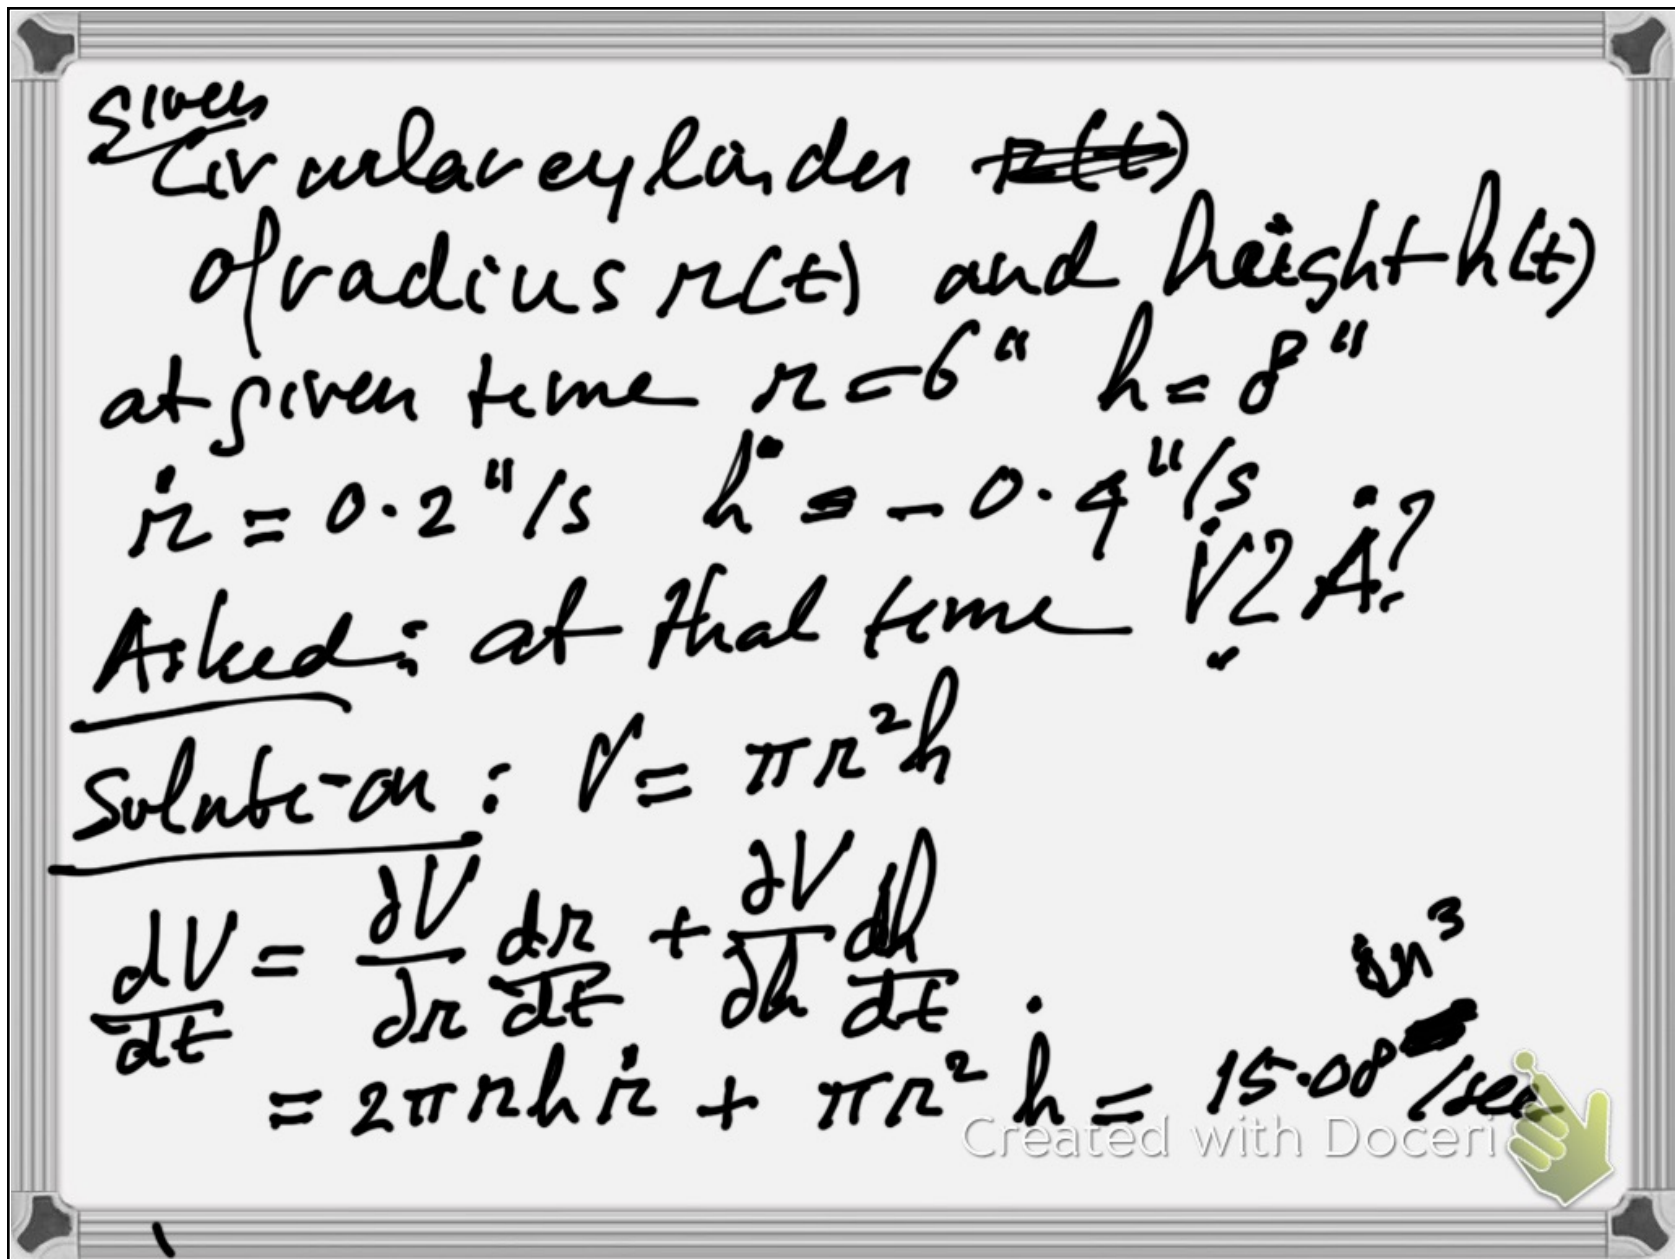 Given
Circular cylinder r(t)
of radius r(t) and height h(t)
at given time r = 6" h = 8"
ṙ = 0.2"/s ḣ = -0.4"/s
Asked: at that time V̇? Ȧ?
Solution: V = πr²h
dV/dt = ∂V/∂r dr/dt + ∂V/∂h dh/dt
= 2πrhṙ + πr²ḣ = 15.08 in³/sec
Created with Doceri